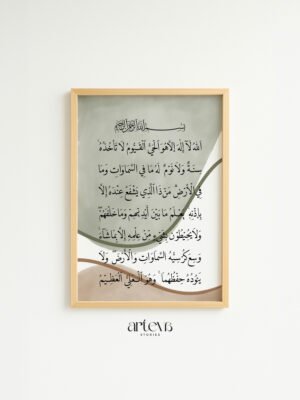 بسم الله الرحمن الرحيم
اللَّهُ لَا إِلَٰهَ إِلَّا هُوَ الْحَيُّ الْقَيُّومُ لَا تَأْخُذُهُ
سِنَةٌ وَلَا نَوْمٌ لَهُ مَا فِي السَّمَاوَاتِ وَمَا
فِي الْأَرْضِ مَنْ ذَا الَّذِي يَشْفَعُ عِنْدَهُ إِلَّا
بِإِذْنِهِ يَعْلَمُ مَا بَيْنَ أَيْدِيهِمْ وَمَا خَلْفَهُمْ
وَلَا يُحِيطُونَ بِشَيْءٍ مِنْ عِلْمِهِ إِلَّا بِمَا شَاءَ
وَسِعَ كُرْسِيُّهُ السَّمَاوَاتِ وَالْأَرْضَ وَلَا
يَئُودُهُ حِفْظُهُمَا وَهُوَ الْعَلِيُّ الْعَظِيمُ
STORIES